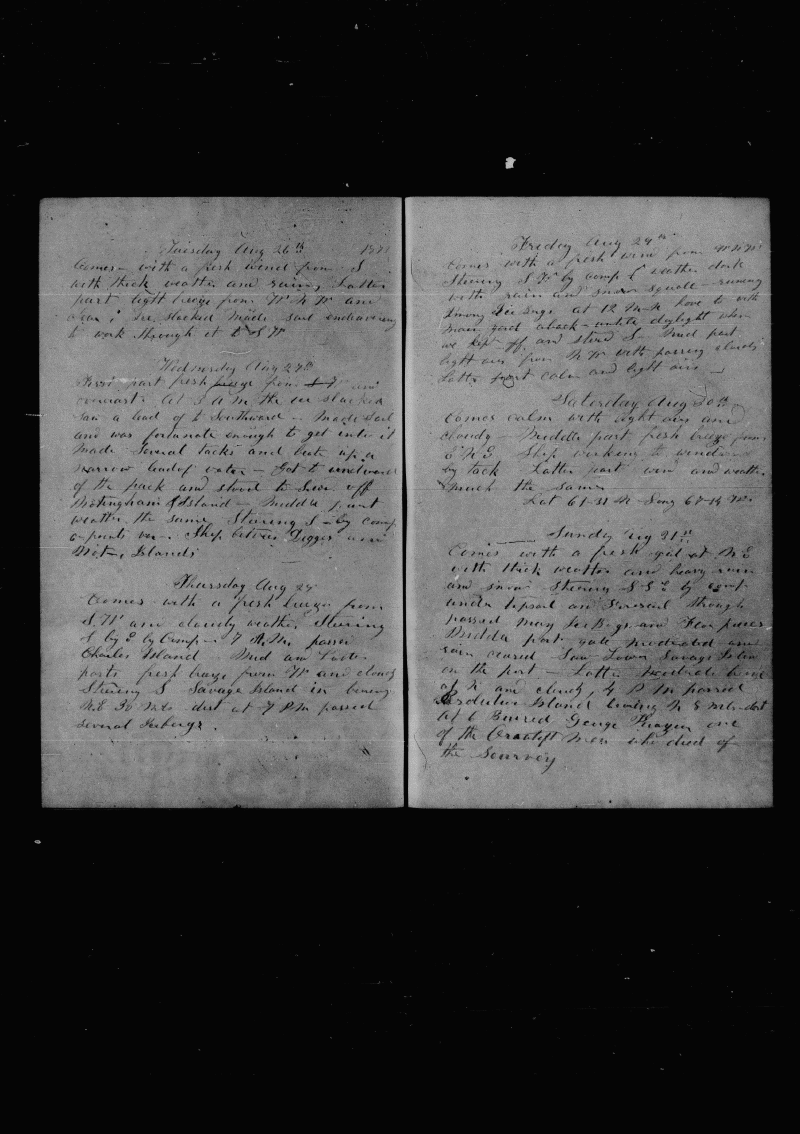 Tuesday Aug 26th 187
Comes with a fresh wind from S
with thick weather and rainy Latter
part light breeze from W N W and
clear; Ice slacked made sail endeavoring
to work through it to S W
Wednesday Aug 27th
First part fresh breeze from and
overcast. At 3 A M the ice slacked
saw a lead of to Southward - Made Sail
and was fortunate enough to get into it
Made Several tacks and beat up a
narrow lead of water - Got to windward
of the pack and stood to off
Notingham Island - Middle part
weather the same Steering S - by comp
Ship between Digges and
Islands
Thursday Aug 28
Comes with a fresh breeze from
S.W and cloudy weather Steering
S by E by Comp - 7 A.M. passed
Charles Island Mid and Latter
parts fresh breeze from W and cloudy
Steering S Savage Island in bearing
N.E 30 Mls dist at 7 P M passed
several Icebergs.
Friday Aug 29th
Comes with a fresh wind from W N W
Steering by comp weather dark
with rain and snow squalls - running
among Ice Bergs At 12 hove to with
main yard aback - untill daylight when
we kept off and stood S - Mid part
light airs from N W with passing clouds
Latter part calm and light airs -
Saturday Aug 30th
Comes calm with light airs and
cloudy - Middle part fresh breeze from
E N E Ship working to windward
by tack Latter part wind and weather
much the same
Lat 61-31 N - Long 67-14 W.
Sunday Aug 31st
Comes with a fresh gale at N E
with thick weather and heavy rain
and snow Steering S S E by comp
under topsail and Foresail through
passed many Ice Bergs and Floe pieces
Middle part gale moderated and
rain ceased Saw Lower Savage Islan
on the port - Latter Moderate breeze
at N and cloudy, 4 P M passed
Resolution Island bearing N E Mls dist
At 6 Burried George one
of the Men who died of
the Scurvey